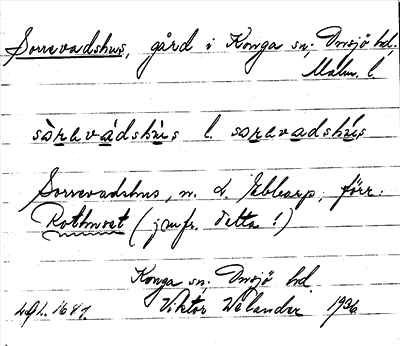 Sorrevadshus, gård i Konga sn; Onsjö hd,
Malm. l.
sòravádshùs l. soravadshús
Sorrevadshus, n. d. Ebbarp, förr:
Rothuset (jmfr. detta!)
Konga sn; Onsjö hd.
1681. Viktor Welander 1936